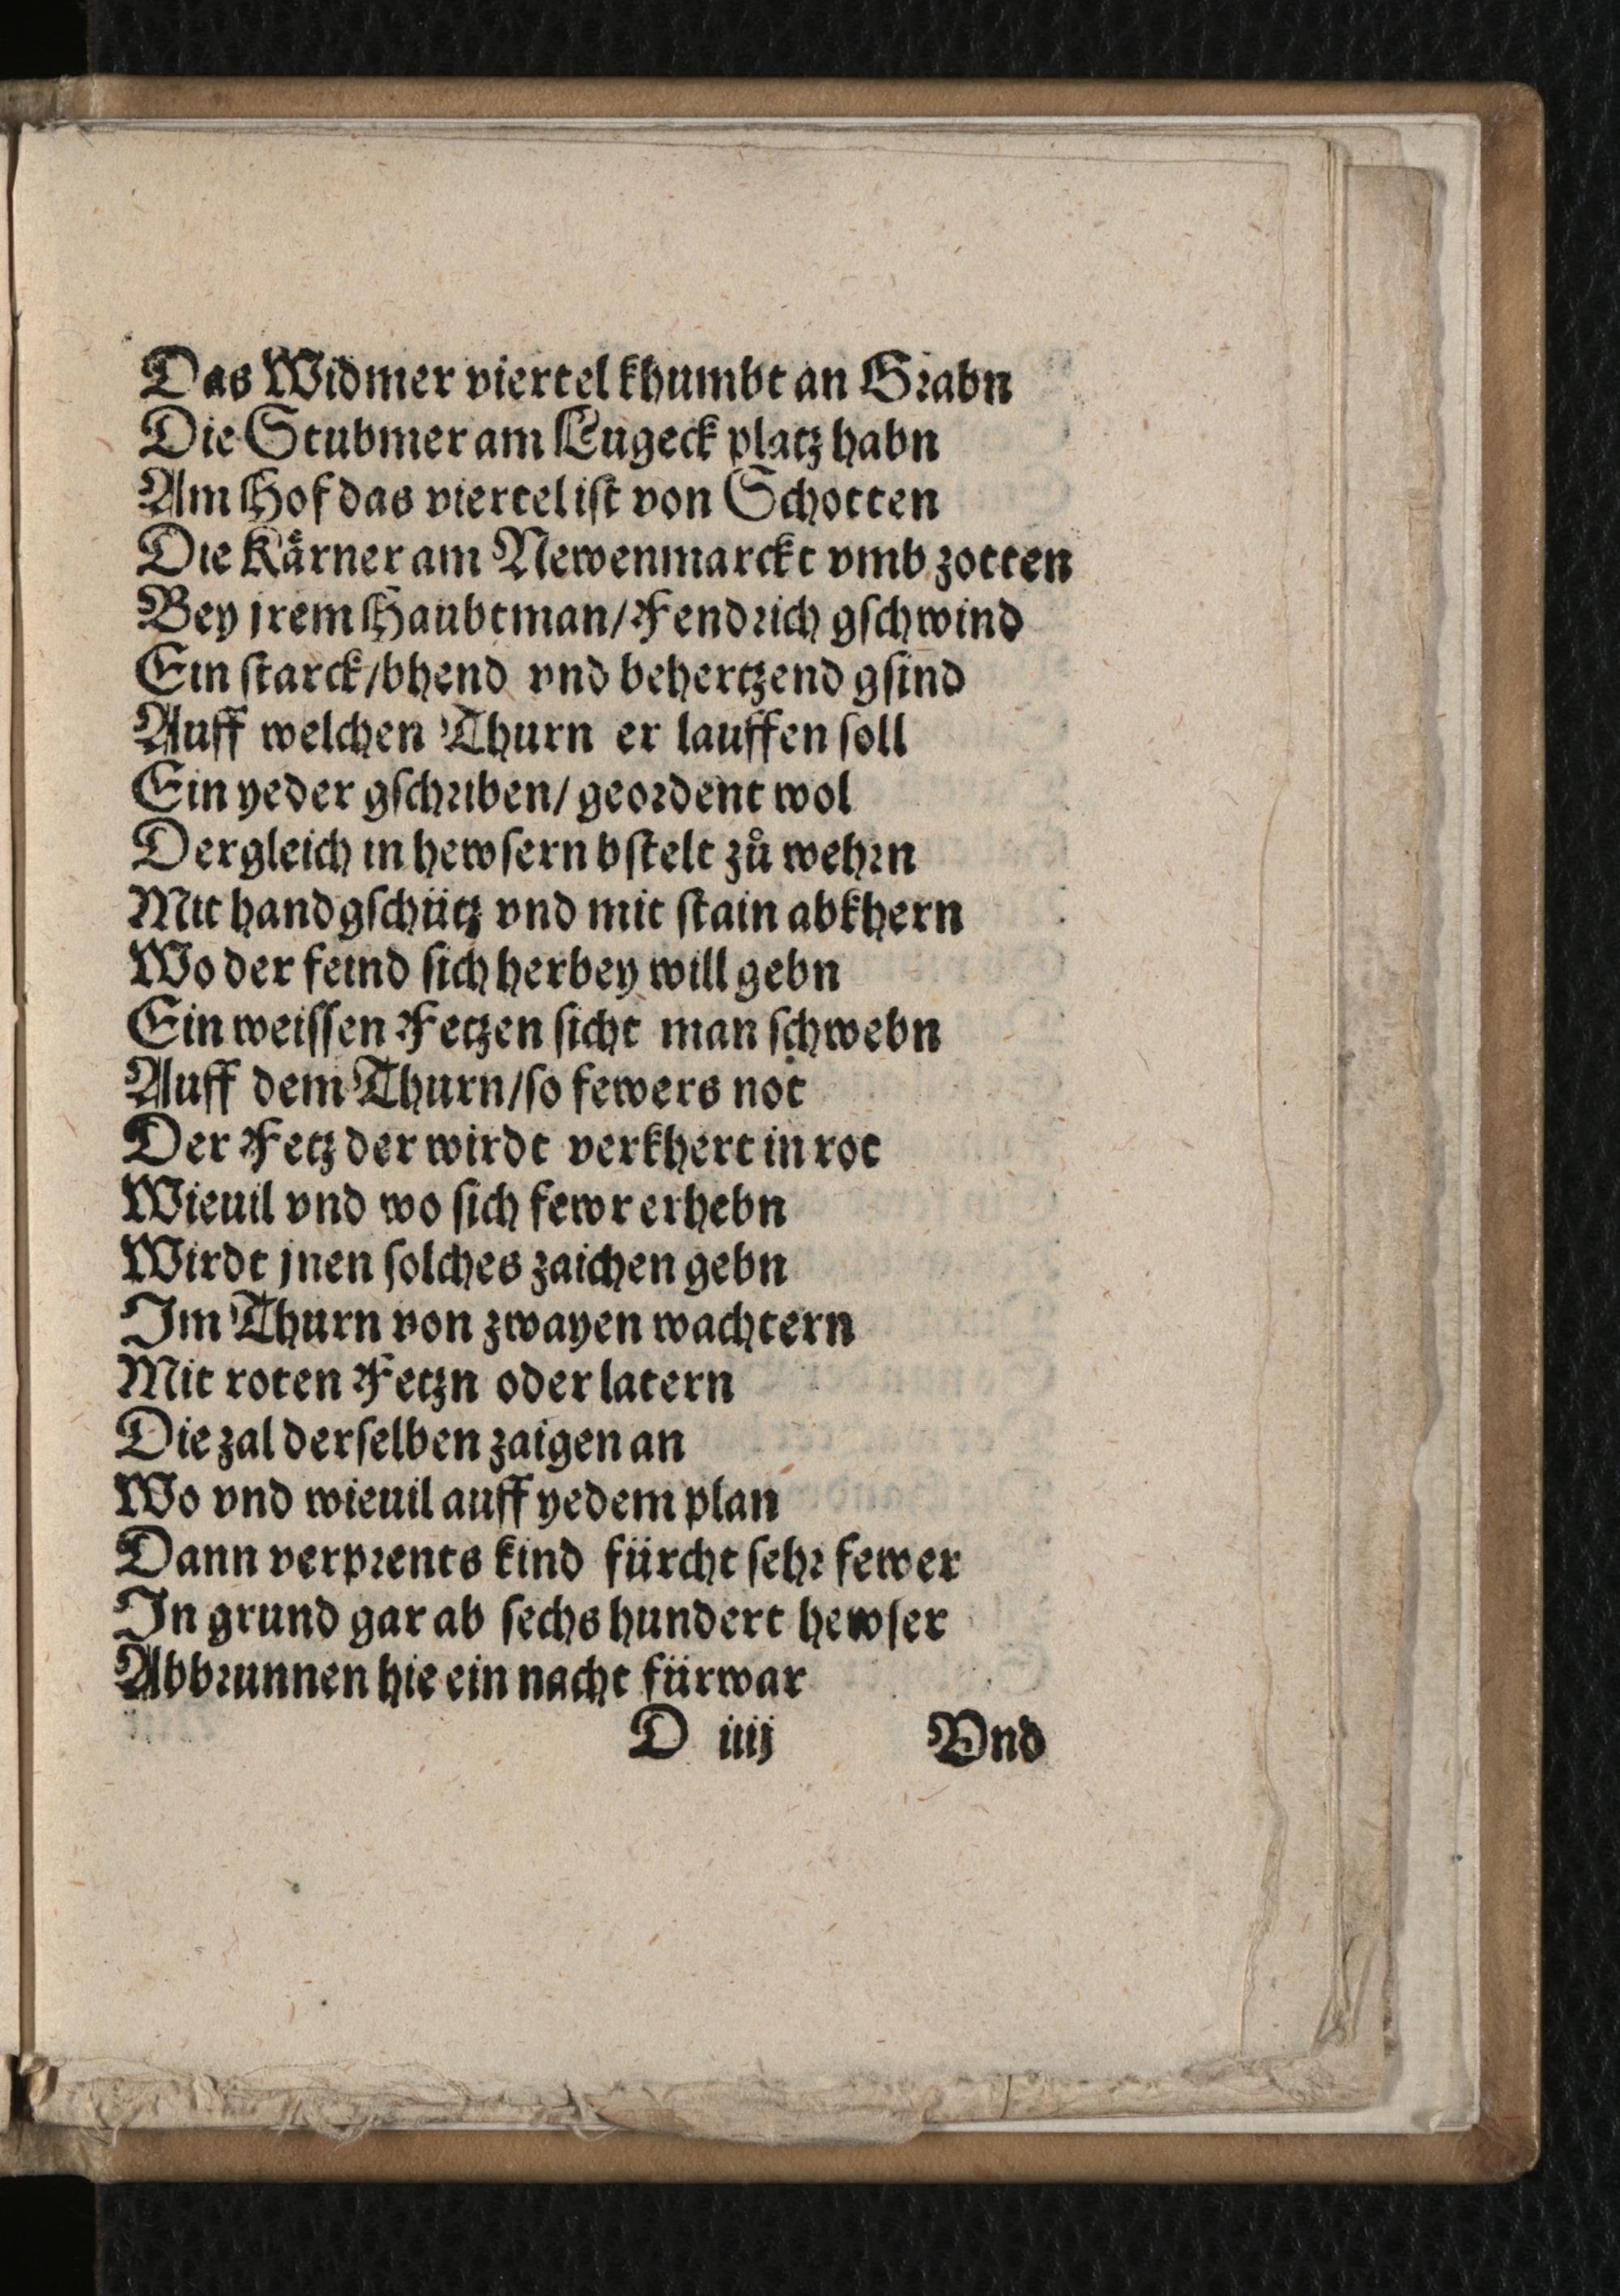 Das Widmer viertel khumbt an Grabn
Die Stubmer am Lugeck platz habn
Am Hof das viertel iſt von Schotten
Die Kaͤrner am Newenmarckt vmb zotten
Bey jrem Haubtman/Fendrich gſchwind
Ein ſtarck/bhend vnd behertzend gſind
Auff welchen Thurn er lauffen ſoll
Ein yeder gſchriben/geordent wol
Dergleich in hewſern bſtelt zuͦ wehrn
Mit handgſchütz vnd mit ſtain abkhern
Wo der feind ſich herbey will gebn
Ein weiſſen Fetzen ſicht man ſchwebn
Auff dem Thurn/ſo fewers not
Der Fetz der wirdt verkhert in rot
Wieuil vnd wo ſich fewr erhebn
Wirdt jnen ſolches zaichen gebn
Im Thurn von zwayen wachtern
Mit roten Fetzn oder latern
Die zal derſelben zaigen an
Wo vnd wieuil auff yedem plan
Dann verprents kind fürcht ſehr fewer
In grund gar ab ſechs hundert hewſer
Abbrunnen hie ein nacht fürwar
D iiij Vnd